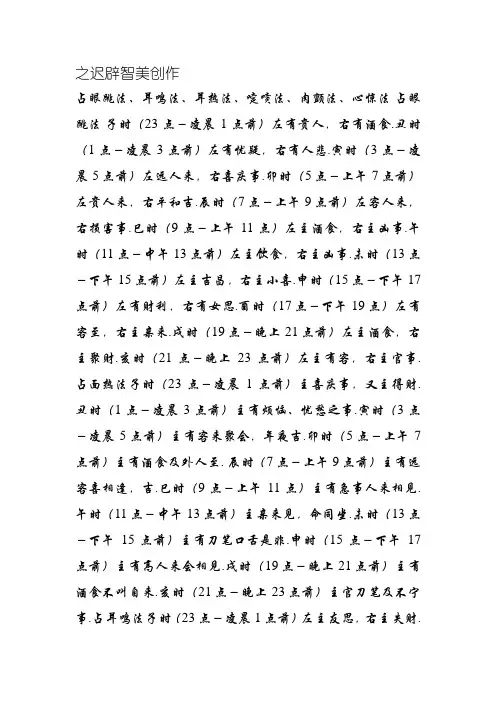 之迟辟智美创作
占眼跳法、耳鸣法、耳热法、啶喷法、肉颤法、心惊法 占眼
跳法 子时（23点－凌晨1点前）左有贵人，右有酒食.丑时
（1点－凌晨3点前）左有忧疑，右有人悲.寅时（3点－凌
晨5点前）左远人来，右喜庆事.卯时（5点－上午7点前）
左贵人来，右平和吉.辰时（7点－上午9点前）左客人来，
右损害事.巳时（9点－上午11点）左主酒食，右主凶事.午
时（11点－中午13点前）左主饮食，右主凶事.未时（13点
－下午15点前）左主吉昌，右主小喜.申时（15点－下午17
点前）左有财利，右有女思.酉时（17点－下午19点）左有
客至，右主亲来.戌时（19点－晚上21点前）左主酒食，右
主聚财.亥时（21点－晚上23点前）左主有客，右主官事.
占面热法子时（23点－凌晨1点前）主喜庆事，又主得财.
丑时（1点－凌晨3点前）主有烦恼、忧愁之事.寅时（3点
－凌晨5点前）主有客来聚会，年夜吉.卯时（5点－上午7
点前）主有酒食及外人至. 辰时（7点－上午9点前）主有远
客喜相逢，吉.巳时（9点－上午11点）主有急事人来相见.
午时（11点－中午13点前）主亲来见，命同坐.未时（13点
－下午15点前）主有刀笔口舌是非.申时（15点－下午17
点前）主有高人来会相见.戌时（19点－晚上21点前）主有
酒食不叫自来.亥时（21点－晚上23点前）主官刀笔及不宁
事.占耳鸣法子时（23点－凌晨1点前）左主友思，右主失财.